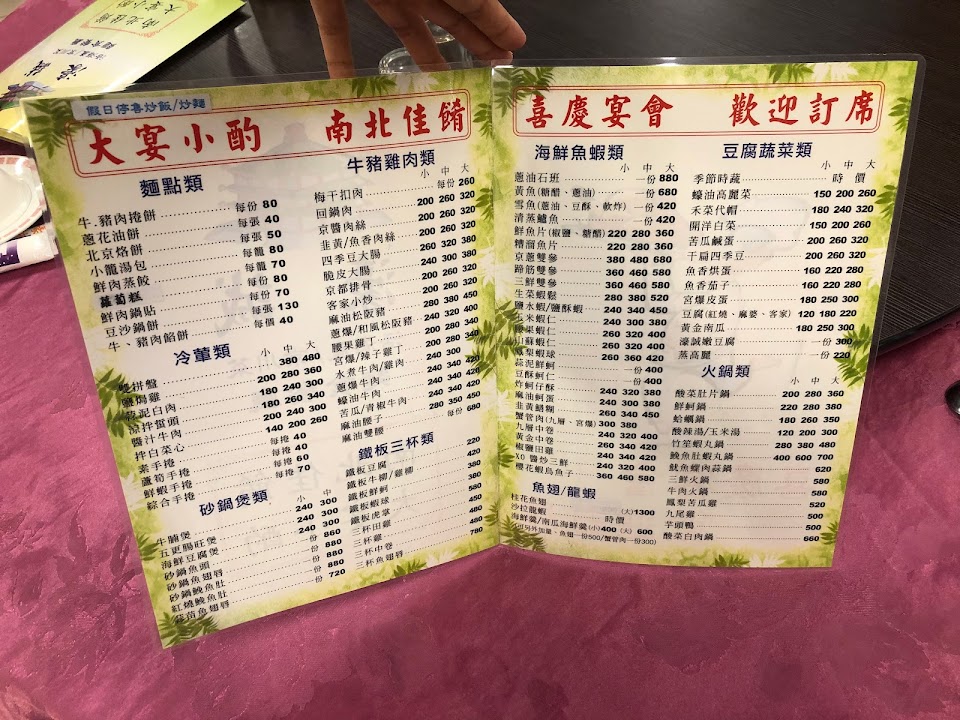 假日停售炒飯/炒麵
大宴小酌 南北佳餚
麵點類
牛.豬肉捲餅 每份 80
蔥花油餅 每張 40
北京烙餅 每張 50
小籠湯包 每籠 80
鮮肉蒸餃 每籠 70
蘿蔔糕 每份 80
鮮肉鍋貼 每份 70
豆沙鍋餅 每張 130
牛、豬肉餡餅 每個 40
冷葷類
小 中 大
雙拼盤 380 480
鹽焗雞 200 280 360
蒜泥白肉 180 240 300
涼拌蜇頭 180 260 340
醬汁牛肉 200 240 300
拌白菜心 140 200 260
素手捲 每捲 40
蘆筍手捲 每捲 40
鮮蝦手捲 每捲 60
綜合手捲 每捲 70
砂鍋煲類
小 中
牛腩煲 240 300
五更腸旺煲 240 300
海鮮豆腐煲 240 300
砂鍋魚頭 一份 860
砂鍋魚翅唇 一份 880
砂鍋鮸魚肚 一份 880
紅燒鮸魚肚 一份 880
蒜苗魚翅唇 一份 720
牛豬雞肉類
小 中 大
梅干扣肉 每份 260
回鍋肉 200 260 320
京醬肉絲 200 260 320
韭黃/魚香肉絲 200 260 320
四季豆大腸 260 320 380
脆皮大腸 240 300
京都排骨 200 260 320
客家小炒 200 260 320
麻油松阪豬 280 380 450
蔥爆/和風松阪豬 240 320 400
腰果雞丁 200 280 340
宮爆/辣子雞丁 200 280 340
水煮牛肉/雞肉
蔥爆牛肉
蠔油牛肉
苦瓜/青椒牛肉
麻油腰子 280 350 450
麻油雙腰 每份 680
鐵板三杯類
鐵板豆腐 220
鐵板牛柳/雞柳 380
鐵板鮮蚵 380
鐵板蝦球 580
鐵板虎掌 450
三杯田雞 480
三杯雞 450
三杯中卷 480
三杯魚翅唇 780
喜慶宴會 歡迎訂席
海鮮魚蝦類
小 中 大
蔥油石班 一份 880
黃魚(糖醋、蔥油) 一份 680
雪魚(蔥油、豆酥、軟炸) 一份 420
清蒸鱸魚 一份 420
鮮魚片(椒鹽、糖醋) 220 280 360
糟溜魚片 220 280 360
京蔥雙參 380 480 680
蹄筋雙參 360 460 580
三鮮雙參 360 460 580
生菜蝦鬆 280 380 520
鹽水蝦/鹽酥蝦 240 340 450
玉米蝦仁 240 300 380
腰果蝦仁 240 320 400
川蘇蝦仁 240 320 400
鳳梨蝦球 260 360 420
蒜泥鮮蚵 一份 400
豆酥蚵仁 一份 400
炸蚵仔酥 240 320 380
麻油蚵蛋 240 320 380
韭黃鱔糊 260 340 450
蟹管肉(九層、宮爆) 300 380
九層中卷 240 320 400
黃金中卷 260 340 420
椒鹽田雞 240 320 400
XO 醬炒三鮮 240 320 400
櫻花蝦烏魚子 360 460 580
魚翅/龍蝦
桂花魚翅 (大)1300
沙拉龍蝦 時價
海鮮羹/南瓜海鮮羹 (小)400 (大) 600
(可另外加量、魚翅一份500/蟹管肉一份300)
豆腐蔬菜類
小 中 大
季節時蔬 時 價
蠔油高麗菜 150 200 260
禾菜代帽 180 240 320
開洋白菜 150 200 260
苦瓜鹹蛋 200 260 320
干扁四季豆 200 260 320
魚香烘蛋 160 220 280
魚香茄子 160 220 280
宮爆皮蛋 180 250 300
豆腐(紅燒、麻婆、客家) 120 180 220
黃金南瓜 180 250 300
濠誠嫩豆腐 一份 300
蒸高麗 一份 220
火鍋類
小 中 大
酸菜肚片鍋 200 280 360
鮮蚵鍋 220 280 380
蛤蠣鍋 180 260 350
酸辣湯/玉米湯 120 200 300
竹笙蝦丸鍋 280 380 480
鮸魚肚蝦丸鍋 400 600 700
魷魚螺肉蒜鍋 620
三鮮火鍋 580
牛肉火鍋 580
鳳梨苦瓜雞 520
九尾雞 500
芋頭鴨 500
酸菜白肉鍋 660